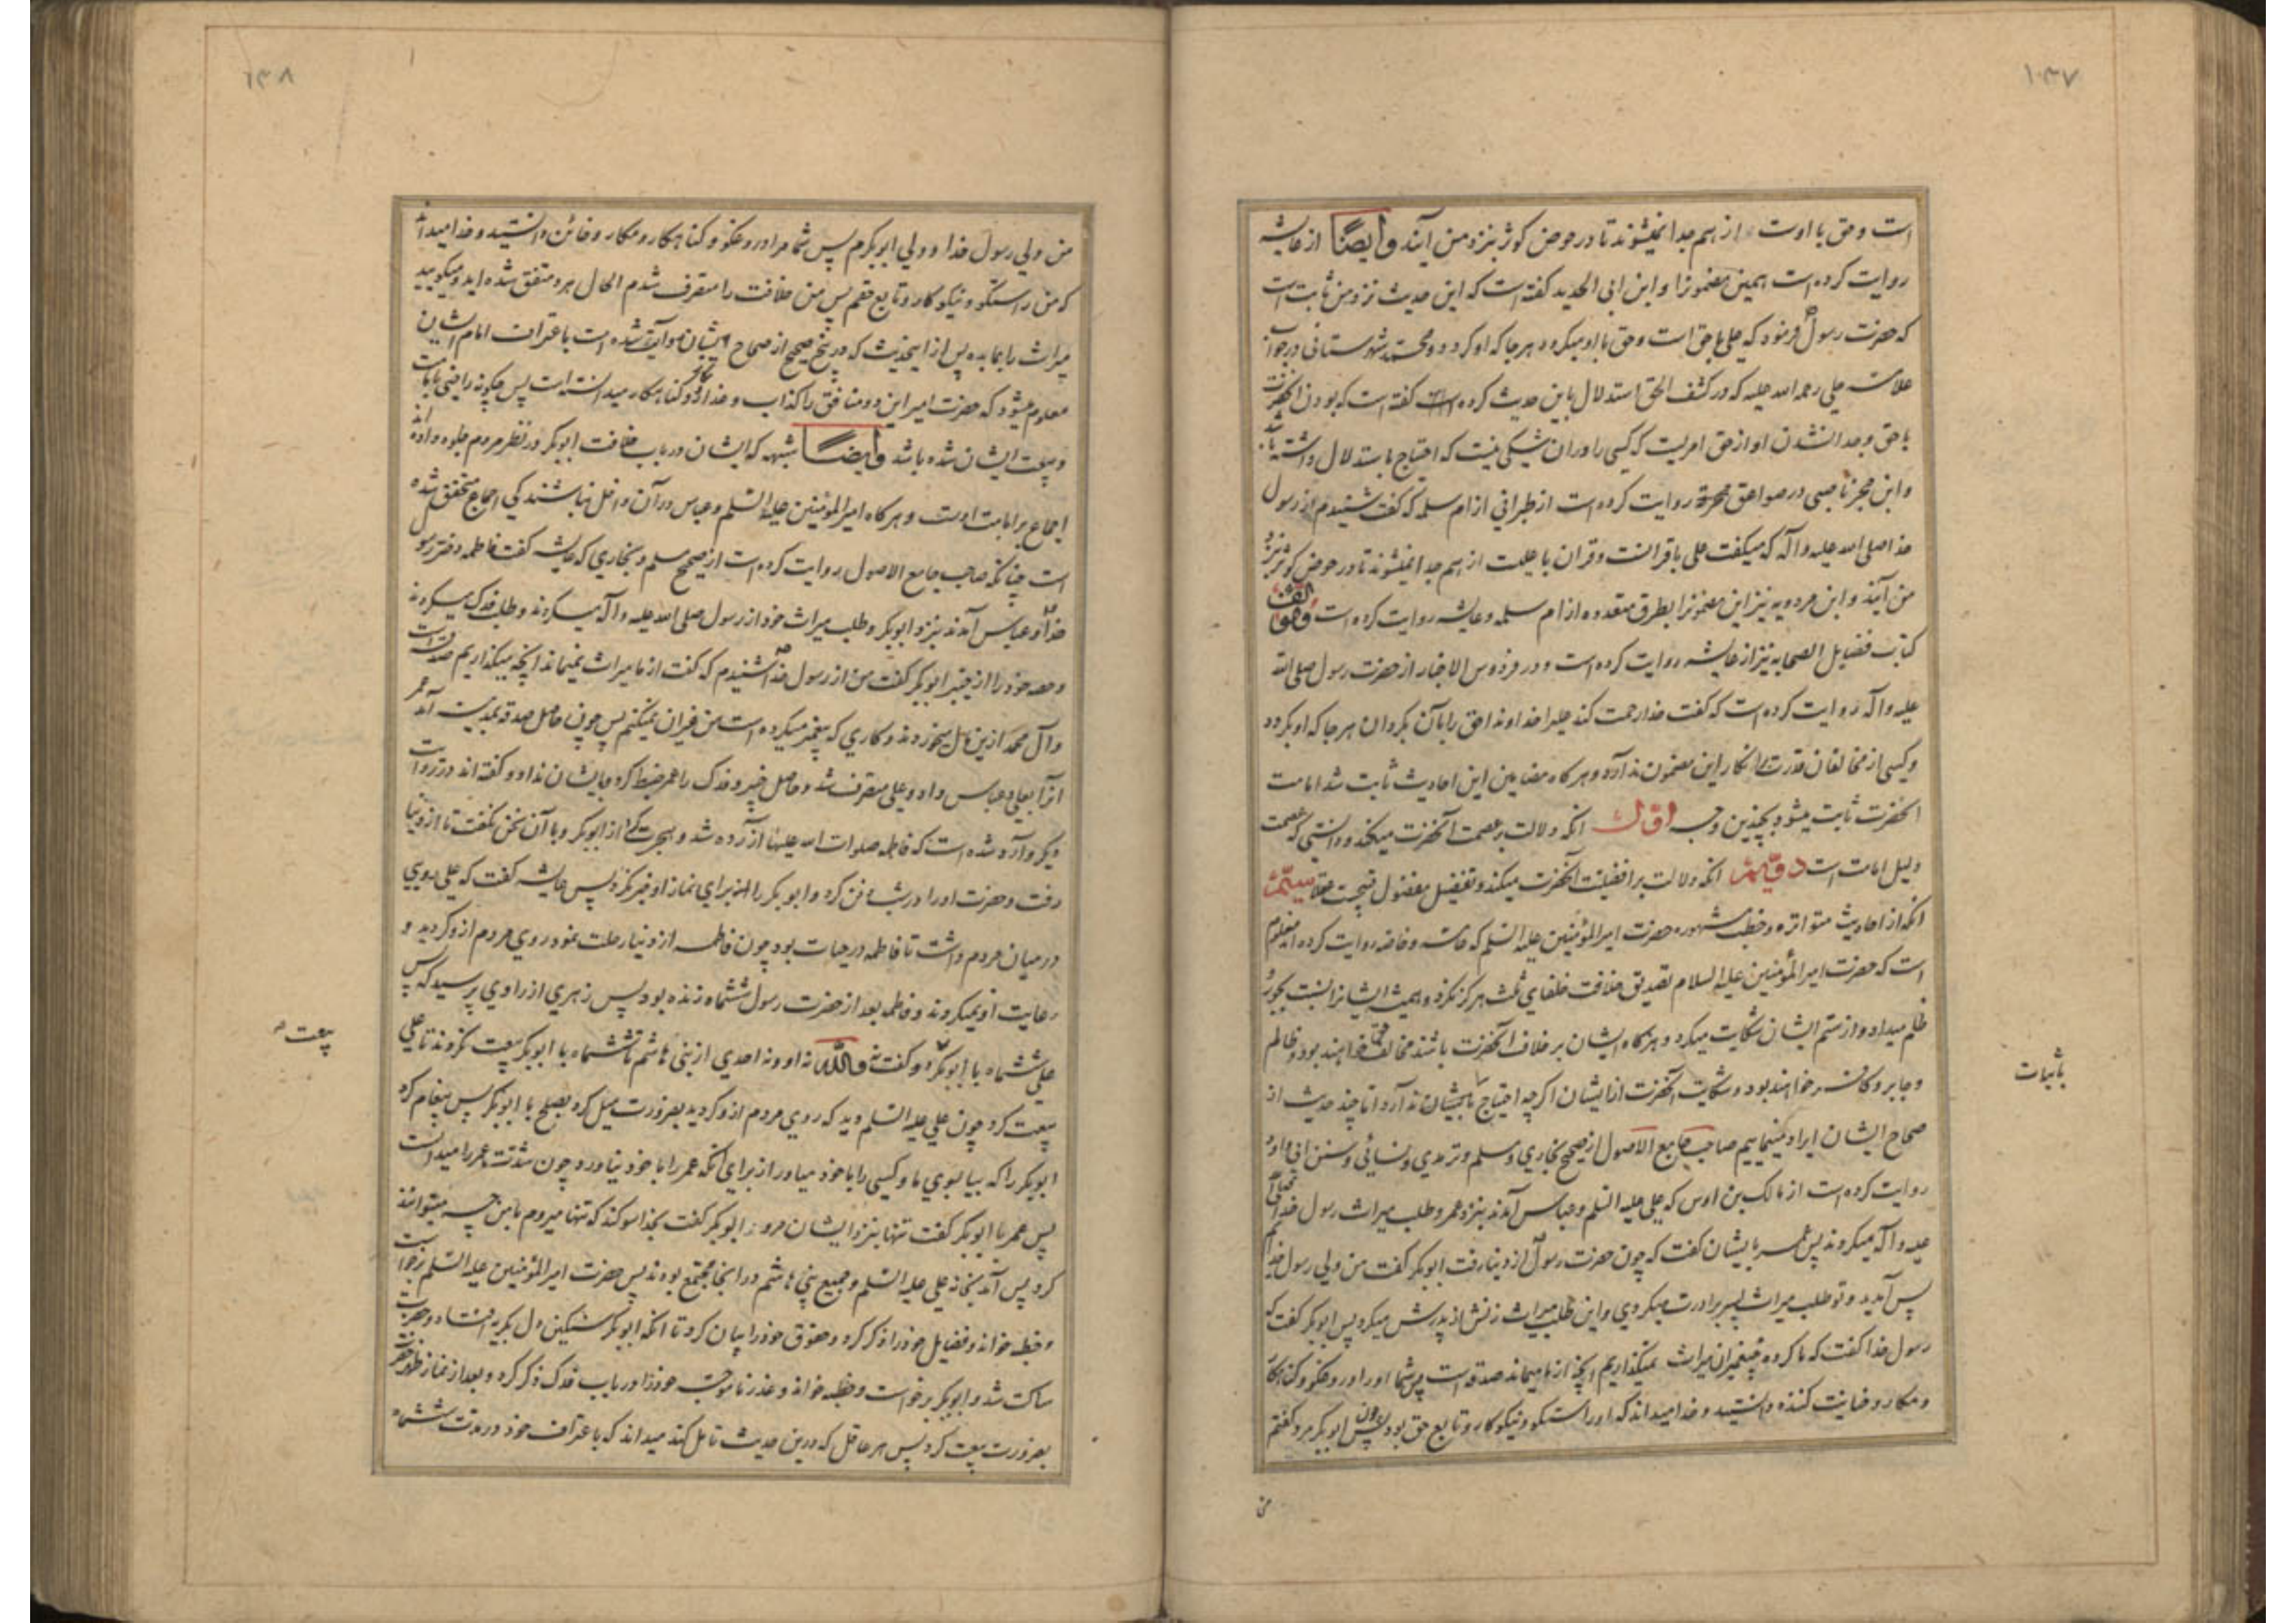 ۱۰۳۷
است و حق با اوست از هم جدا نمیشوند تا در حوض کوثر بنزد من آیند وایضاً از عایشه
روایت کرده است همین مضمونرا و ابن ابی الحدید گفته است که این حدیث نزد من ثابت است
که حضرت رسول ص فرمود که علی با حق است و حق با او میکردد هرجا که او کردد و محمد شهرستانی در جواب
علامه حلی رحمه الله علیه که در کشف الحق استدلال باین حدیث کرده است گفته است که بودن آنحضرت
با حق و جدا نشدن او از حق امریست که کسی را در ان شکی نیست که احتیاج باستدلال داشته باشد
و ابن حجر ناصبی در صواعق محرقه روایت کرده است از طبرانی از ام سلمه که گفت شنیدم از رسول
خدا صلی الله علیه و آله که میگفت علی با قرانست و قران با علیست از هم جدا نمیشوند تا در حوض کوثر بنزد
من آیند و ابن مردویه نیز این مضمونرا بطرق متعدده از ام سلمه و عایشه روایت کرده است و مؤلف
کتاب فضایل الصحابه نیز از عایشه روایت کرده است و در فردوس الاخبار از حضرت رسول صلی الله
علیه و آله روایت کرده است که گفت خدا رحمت کند علیرا خداوندا حق را با آن بگردان هر جا که او بگردد
و کسی از مخالفان قدرت انکار این مضمون ندارد و هرگاه مضامین این احادیث ثابت شد امامت
آنحضرت ثابت میشود بچندین وجه اول انکه دلالت بر عصمت آنحضرت میکند و دانستی که عصمت
دلیل امامت است دویّم انکه دلالت بر افضلیت آنحضرت میکند و تفضیل مفضول قبیحست عقلا سیّم
انکه از احادیث متواتره و خطب مشهوره حضرت امیر المؤمنین علیه السلم که عامه و خاصه روایت کرده اند معلوم
است که حضرت امیر المؤمنین علیه السلام تصدیق خلافت خلفای ثلث هرگز نکرد و همیشه ایشانرا نسبت بجور و
ظلم میداد و از ستم ایشان شکایت میکرد و هرگاه ایشان بر خلاف آنحضرت باشند مخالف حق خواهند بود و ظالم
و جابر و کافر خواهند بود و شکایت آنحضرت از ایشان اگرچه احتیاج باثبات ندارد اما چند حدیث از
صحاح ایشان ایراد مینماییم صاحب جامع الاصول از صحیح بخاری و مسلم و ترمدی و نسائی و سنن ابی داود
روایت کرده است از مالک بن اوس که علی علیه السلم و عباس آمدند بنزد عمر و طلب میراث رسول خدا صلی الله
علیه و آله میکردند پس عمر بایشان گفت که چون حضرت رسول ص از دنیا رفت ابوبکر گفت من ولی رسول خدایم
پس آمدید و تو طلب میراث پسر برادرت میکردی و این طلب میراث زنش از پدرش میکرد پس ابوبکر گفت که
رسول خدا گفت که ما گروه پیغمبران میراث نمیگذاریم آنچه از ما میماند صدقه است پس شما او را دروغگو و گناهکار
و مکار و خیانت کننده دانستید و خدا میداند که او راستگو و نیکوکار و تابع حق بود پس چون ابوبکر مرد گفتم
من
باثبات
۱۰۳۸
من ولی رسول خدا و ولی ابوبکرم پس شما مرا دروغگو و گناهکار و مکار و خائن دانستید و خدا میداند
که من راستگو و نیکوکار و تابع حقم پس من خلافت را متصرف شدم الحال هر دو متفق شده اید و میگویید
میراث را بما بده پس از این حدیث که در پنج صحیح از صحاح ایشان روایت شده است باعتراف امام ایشان
معلوم میشود که حضرت امیر این دو منافق را کذاب و غدار و مکار و گناهکار میدانسته است پس چگونه راضی بامامت
و بیعت ایشان شده باشد وایضاً شبهه که ایشان در باب خلافت ابوبکر در نظر مردم جلوه داده اند
اجماع بر امامت اوست و هرگاه امیر المؤمنین علیه السلم و عباس در آن داخل نباشند کی اجماع متحقق شده
است چنانکه صاحب جامع الاصول روایت کرده است از صحیح مسلم و بخاری که عایشه گفت فاطمه دختر رسول
خدا و عباس آمدند بنزد ابوبکر و طلب میراث خود از رسول صلی الله علیه و آله میکردند و طلب فدک میکردند
و حصه خود را از خیبر ابوبکر گفت من از رسول خدا ص شنیدم که گفت از ما میراث نمیماند آنچه میگذاریم صدقه است
و آل محمد ازین مال میخورند و کاری که پیغمبر میکرده است من غیر ان نمیکنم پس چون حاصل صدقه بمدینه آمد عمر
آنرا بعلی و عباس داد و علی متصرف شد و حاصل خیبر و فدک را عمر ضبط کرد بایشان نداد و گفته اند در روایت
دیگر وارد شده است که فاطمه صلوات الله علیها آزرده شد و هجرت کرد از ابوبکر و با آن سخن نگفت تا از دنیا
رفت و حضرت او را در شب دفن کرد و ابوبکر را از برای نماز او خبر نکرد پس عایشه گفت که علی رویی
در میان مردم داشت تا فاطمه در حیات بود چون فاطمه از دنیا رحلت نمود روی مردم از او گردید و
رعایت او نمیکردند و فاطمه بعد از حضرت رسول ششماه زنده بود پس زهری از راوی پرسید که پس
علی ششماه با ابوبکر بیعت نکرد گفت نه والله نه او و نه احدی از بنی هاشم تا ششماه با ابوبکر بیعت نکردند تا علی
بیعت کرد چون علی علیه السلم دید که روی مردم از او گردید بضرورت میل کرد بصلح با ابوبکر پس پیغام کرد
ابوبکر را که بیا بسوی ما و کسی را با خود میاور از برای آنکه عمر را با خود نیاورد چون شدت عمر را میدانست
پس عمر با ابوبکر گفت تنها بنزد ایشان مرو ابوبکر گفت بخدا سوگند که تنها میروم با من چه میتوانند
کرد پس آمد بخانه علی علیه السلم و جمیع بنی هاشم در انجا مجتمع بودند پس حضرت امیر المؤمنین علیه السلم برخاست
و خطبه خواند و فضایل خود را ذکر کرد و حقوق خود را بیان کرد تا انکه ابوبکر سنگین دل بگریه افتاد و حضرت
ساکت شد و ابوبکر برخواست و خطبه خواند و عذر نا موجه خود را در باب فدک ذکر کرد و بعد از نماز ظهر حضرت
بضرورت بیعت کرد پس هر عاقل که درین حدیث تامل کند میداند که باعتراف خود در مدت ششماه
بیعت